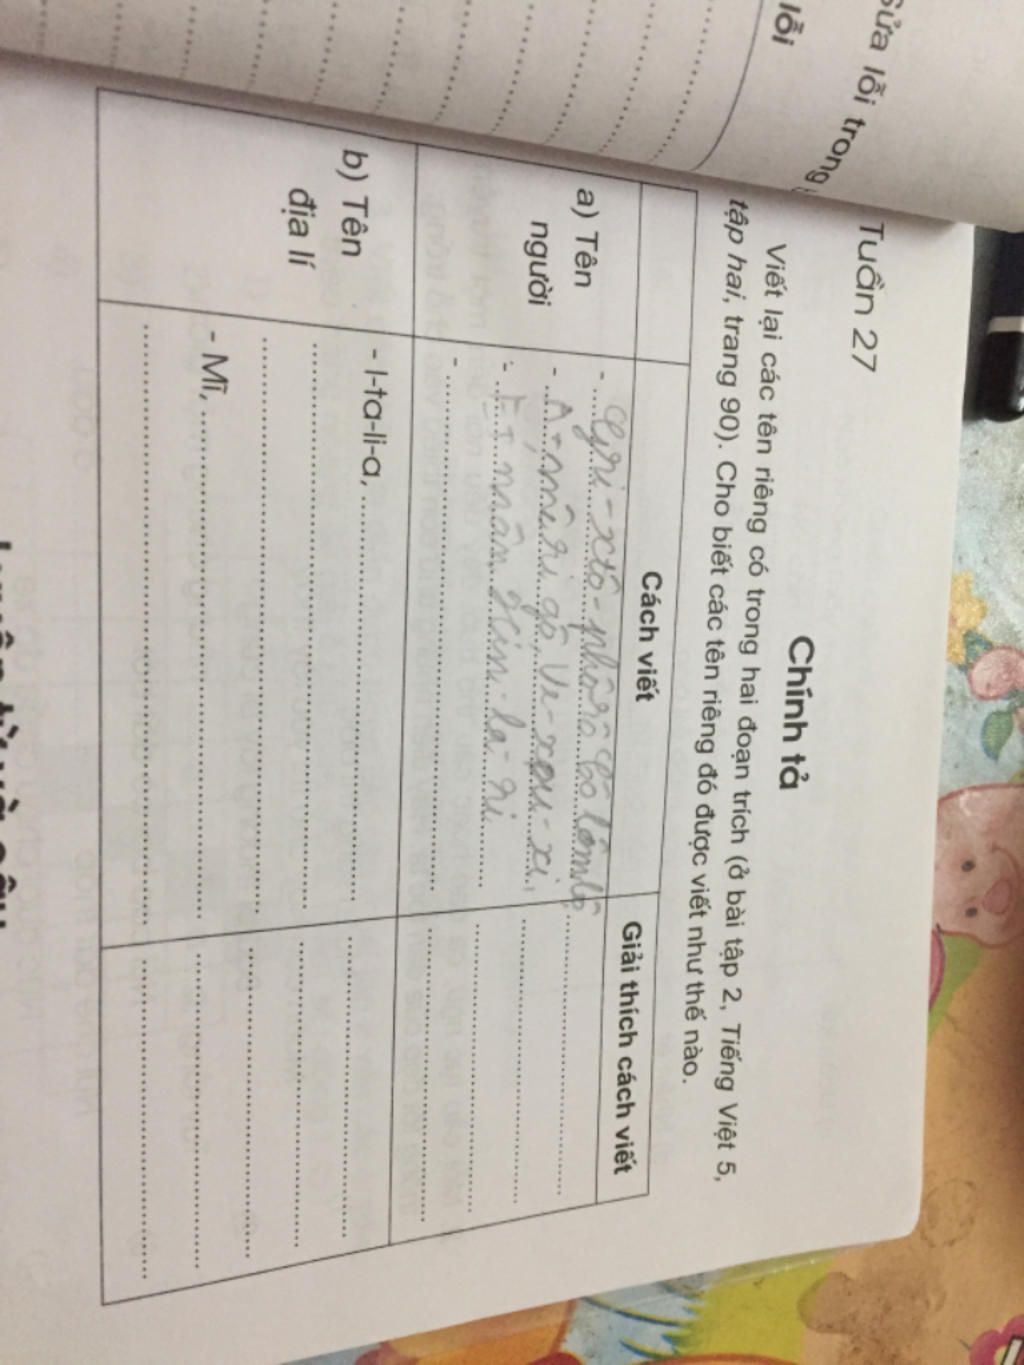 Sửa lỗi trong
lỗi
Tuần 27
Chính tả
Viết lại các tên riêng có trong hai đoạn trích (ở bài tập 2, Tiếng Việt 5,
tập hai, trang 90). Cho biết các tên riêng đó được viết như thế nào.
Cách viết
Giải thích cách viết
a) Tên
người
- Cri-xtô-phôrô Cô lômbô
- A-mêri gô, Ve-xpu-xi,
- Ét mân Hin-la-ri
-
b) Tên
địa lí
- I-ta-li-a,
- Mĩ,